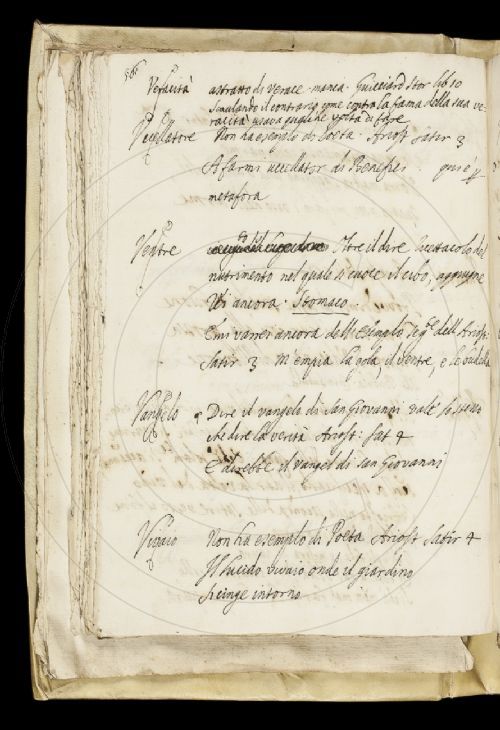 Veracità astratto di verace manca. Guicciard stor lib 10
simulando il contrario come contro la fama della sua ve-
racità usava
Vccellatore Non ha esemplo di Poeta. Ariost Satir 3
A farmi uccellator di Benefici. qui è p
metafora
Ventre Oltre il dire Ricettacolo del
nutrimento nel quale si cuoce il cibo, aggiugne
rei ancora. Stomaco
E mi varrei ancora dell'esemplo seg.te dell'Ariost:
Satir 3 M'empia la gola il ventre, e le budella
Vangelo Dire il vangelo di San Giovanni vale lo stesso
che dire la verità Ariost: Sat 4
E direbbe il vangel di san Giovanni
Vivaio Non ha esemplo di Poeta Ariost Satir 4
Il lucido vivaio onde il giardino
Si cinge intorno